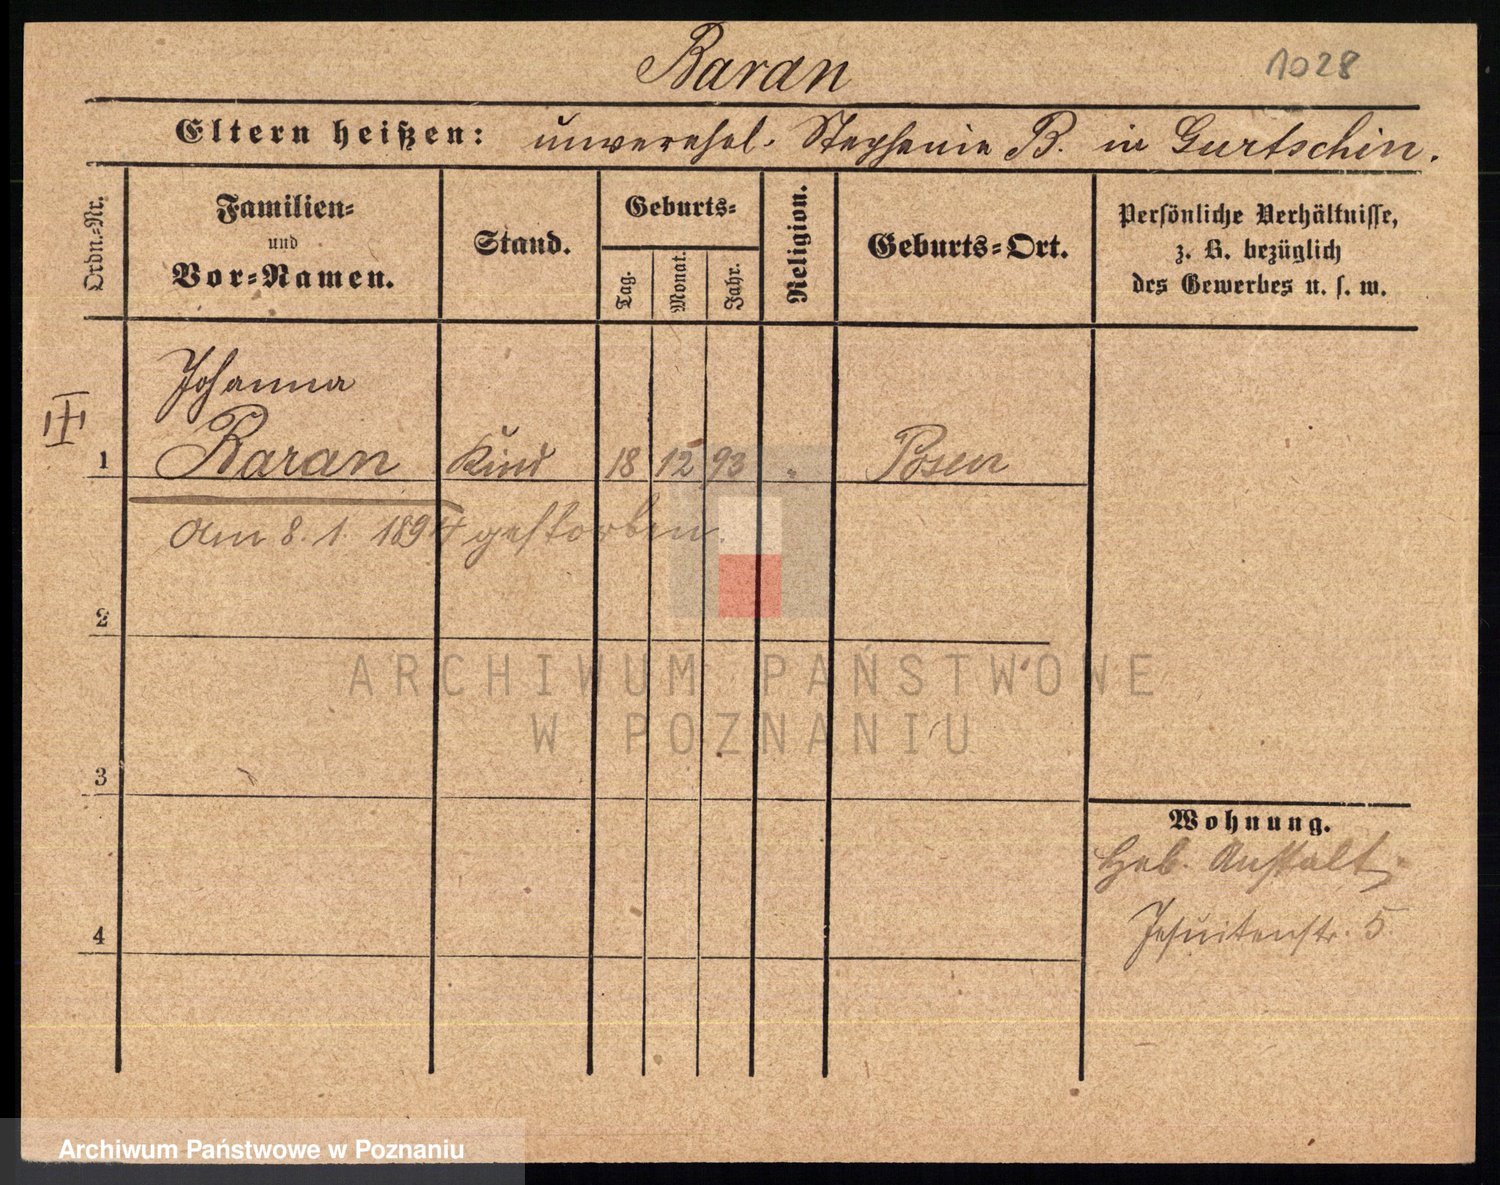 Baran
1028
Eltern heißen: unverehel. Stephanie B. in Gurtschin.
Ordn.-Nr.
Familien-
und
Vor-Namen.
Stand.
Geburts-
Tag.
Monat.
Jahr.
Religion.
Geburts-Ort.
Persönliche Verhältnisse,
z. B. bezüglich
des Gewerbes u. s. w.
Johanna
III
1 Baran Kind 18 12 93 " Posen
Am 8. 1. 1894 gestorben.
2
ARCHIWUM PAŃSTWOWE
W POZNANIU
3
Wohnung.
Heb. Anstalt
4
Jesuitenstr. 5.
Archiwum Państwowe w Poznaniu